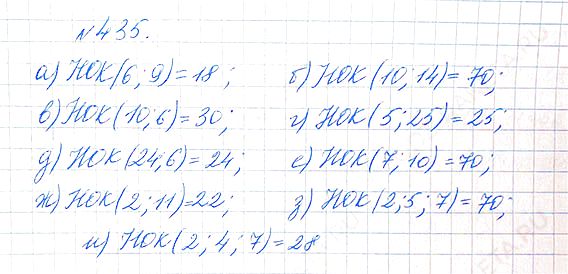 № 435.
а) НОК(6; 9) = 18; б) НОК(10; 14) = 70;
в) НОК(10; 6) = 30; г) НОК(5; 25) = 25;
д) НОК(24; 6) = 24; е) НОК(7; 10) = 70;
ж) НОК(2; 11) = 22; з) НОК(2; 5; 7) = 70;
и) НОК(2; 4; 7) = 28